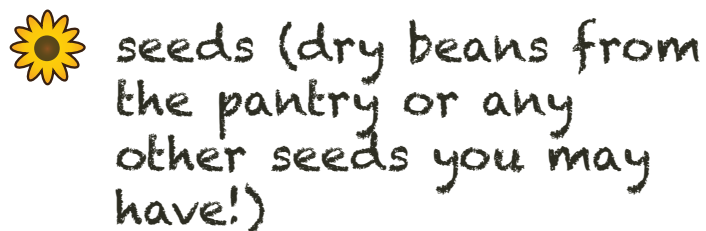 seeds (dry beans from
the pantry or any
other seeds you may
have!)